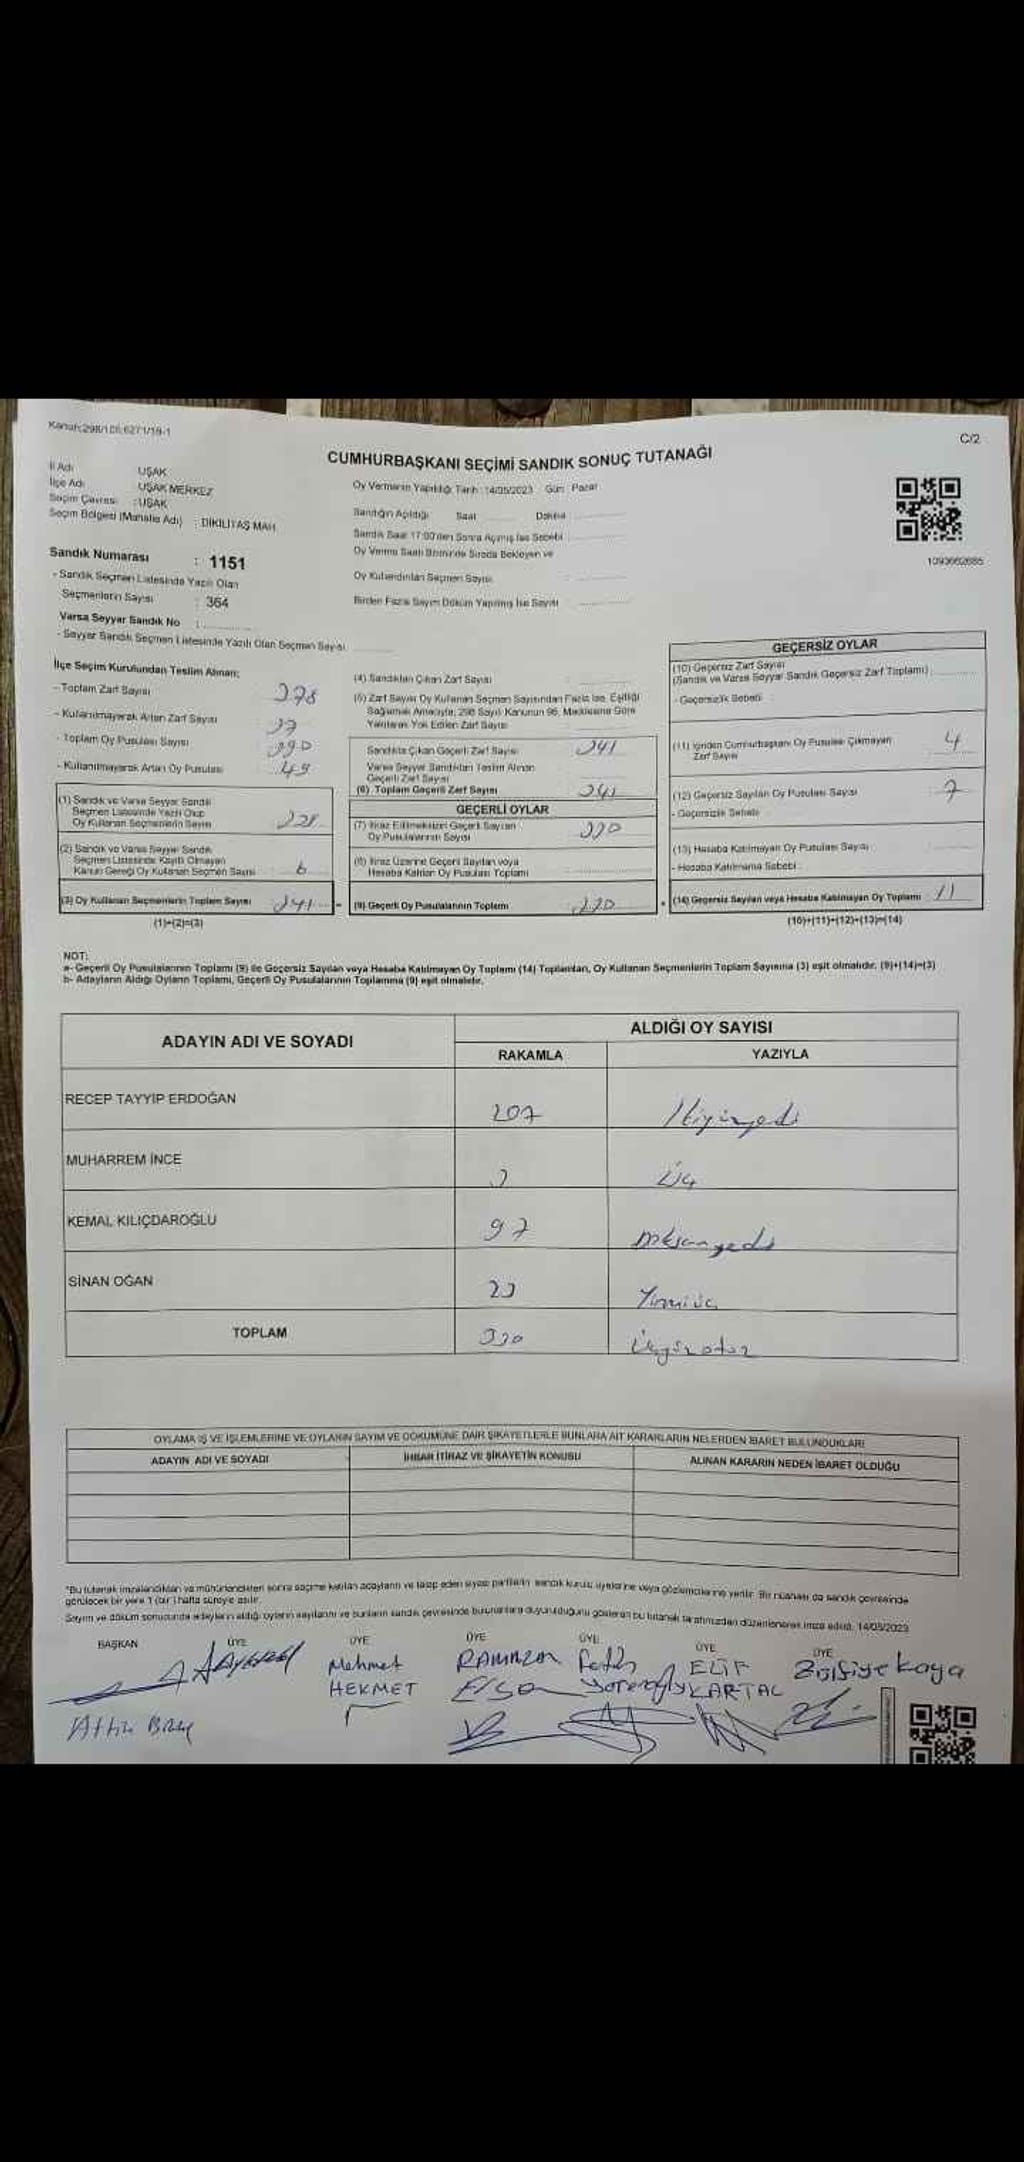 Kanun:298/105;6271/19-1
C/2
CUMHURBAŞKANI SEÇİMİ SANDIK SONUÇ TUTANAĞI
İl Adı : UŞAK
İlçe Adı : UŞAK MERKEZ
Seçim Çevresi : UŞAK
Seçim Bölgesi (Mahalle Adı) : DİKİLİTAŞ MAH.
Oy Vermenin Yapıldığı Tarih : 14/05/2023 Gün : Pazar
Sandığın Açıldığı Saat Dakika
Sandık Saat 17:00'den Sonra Açılmış İse Sebebi
Oy Verme Saati Bitiminde Sırada Bekleyen ve
Oy Kullandırılan Seçmen Sayısı :
Birden Fazla Sayım Döküm Yapılmış İse Sayısı :
1093662685
Sandık Numarası : 1151
- Sandık Seçmen Listesinde Yazılı Olan
Seçmenlerin Sayısı : 364
Varsa Seyyar Sandık No :
- Seyyar Sandık Seçmen Listesinde Yazılı Olan Seçmen Sayısı
İlçe Seçim Kurulundan Teslim Alınan;
- Toplam Zarf Sayısı 378
- Kullanılmayarak Artan Zarf Sayısı 37
- Toplam Oy Pusulası Sayısı 390
- Kullanılmayarak Artan Oy Pusulası 49
(1) Sandık ve Varsa Seyyar Sandık
Seçmen Listesinde Yazılı Olup
Oy Kullanan Seçmenlerin Sayısı
(2) Sandık ve Varsa Seyyar Sandık
Seçmen Listesinde Kayıtlı Olmayan
Kanun Gereği Oy Kullanan Seçmen Sayısı 6
(3) Oy Kullanan Seçmenlerin Toplam Sayısı 341
(1)+(2)=(3)
(4) Sandıktan Çıkan Zarf Sayısı
(5) Zarf Sayısı Oy Kullanan Seçmen Sayısından Fazla İse, Eşitliği
Sağlamak Amacıyla, 298 Sayılı Kanunun 98. Maddesine Göre
Yakılarak Yok Edilen Zarf Sayısı
Sandıkta Çıkan Geçerli Zarf Sayısı 341
Varsa Seyyar Sandıktan Teslim Alınan
Geçerli Zarf Sayısı
(6) Toplam Geçerli Zarf Sayısı 341
GEÇERLİ OYLAR
(7) İtiraz Edilmeksizin Geçerli Sayılan
Oy Pusulalarının Sayısı 330
(8) İtiraz Üzerine Geçerli Sayılan veya
Hesaba Katılan Oy Pusulası Toplamı
(9) Geçerli Oy Pusulalarının Toplamı 330
GEÇERSİZ OYLAR
(10) Geçersiz Zarf Sayısı
(Sandık ve Varsa Seyyar Sandık Geçersiz Zarf Toplamı)
- Geçersizlik Sebebi :
(11) İçinden Cumhurbaşkanı Oy Pusulası Çıkmayan
Zarf Sayısı 4
(12) Geçersiz Sayılan Oy Pusulası Sayısı 7
- Geçersizlik Sebebi
(13) Hesaba Katılmayan Oy Pusulası Sayısı
- Hesaba Katılmama Sebebi :
(14) Geçersiz Sayılan veya Hesaba Katılmayan Oy Toplamı 11
(10)+(11)+(12)+(13)=(14)
NOT:
a- Geçerli Oy Pusulalarının Toplamı (9) ile Geçersiz Sayılan veya Hesaba Katılmayan Oy Toplamı (14) Toplamları, Oy Kullanan Seçmenlerin Toplam Sayısına (3) eşit olmalıdır. (9)+(14)=(3)
b- Adayların Aldığı Oyların Toplamı, Geçerli Oy Pusulalarının Toplamına (9) eşit olmalıdır.
ADAYIN ADI VE SOYADI
ALDIĞI OY SAYISI
RAKAMLA YAZIYLA
RECEP TAYYİP ERDOĞAN 207 İkiyüzyedi
MUHARREM İNCE 3 Üç
KEMAL KILIÇDAROĞLU 97 Doksanyedi
SİNAN OĞAN 23 Yirmiüç
TOPLAM 330 Üçyüzotuz
OYLAMA İŞ VE İŞLEMLERİNE VE OYLARIN SAYIM VE DÖKÜMÜNE DAİR ŞİKAYETLERLE BUNLARA AİT KARARLARIN NELERDEN İBARET BULUNDUKLARI
ADAYIN ADI VE SOYADI İHBAR İTİRAZ VE ŞİKAYETİN KONUSU ALINAN KARARIN NEDEN İBARET OLDUĞU
"Bu tutanak imzalandıktan ve mühürlendikten sonra seçime katılan adayların ve talep eden siyasi partilerin sandık kurulu üyelerine veya gözlemcilerine verilir. Bir nüshası da sandık çevresinde
görülecek bir yere 1 (bir) hafta süreyle asılır.
Sayım ve döküm sonucunda adayların aldığı oyların sayılarını ve bunların sandık çevresinde bulunanlara duyurulduğunu gösteren bu tutanak tarafımızdan düzenlenerek imza edildi. 14/05/2023
BAŞKAN ÜYE ÜYE ÜYE ÜYE ÜYE ÜYE
Mehmet RAMAZAN Fatih ELİF Zülfiye Kaya
HEKMET KARTAL